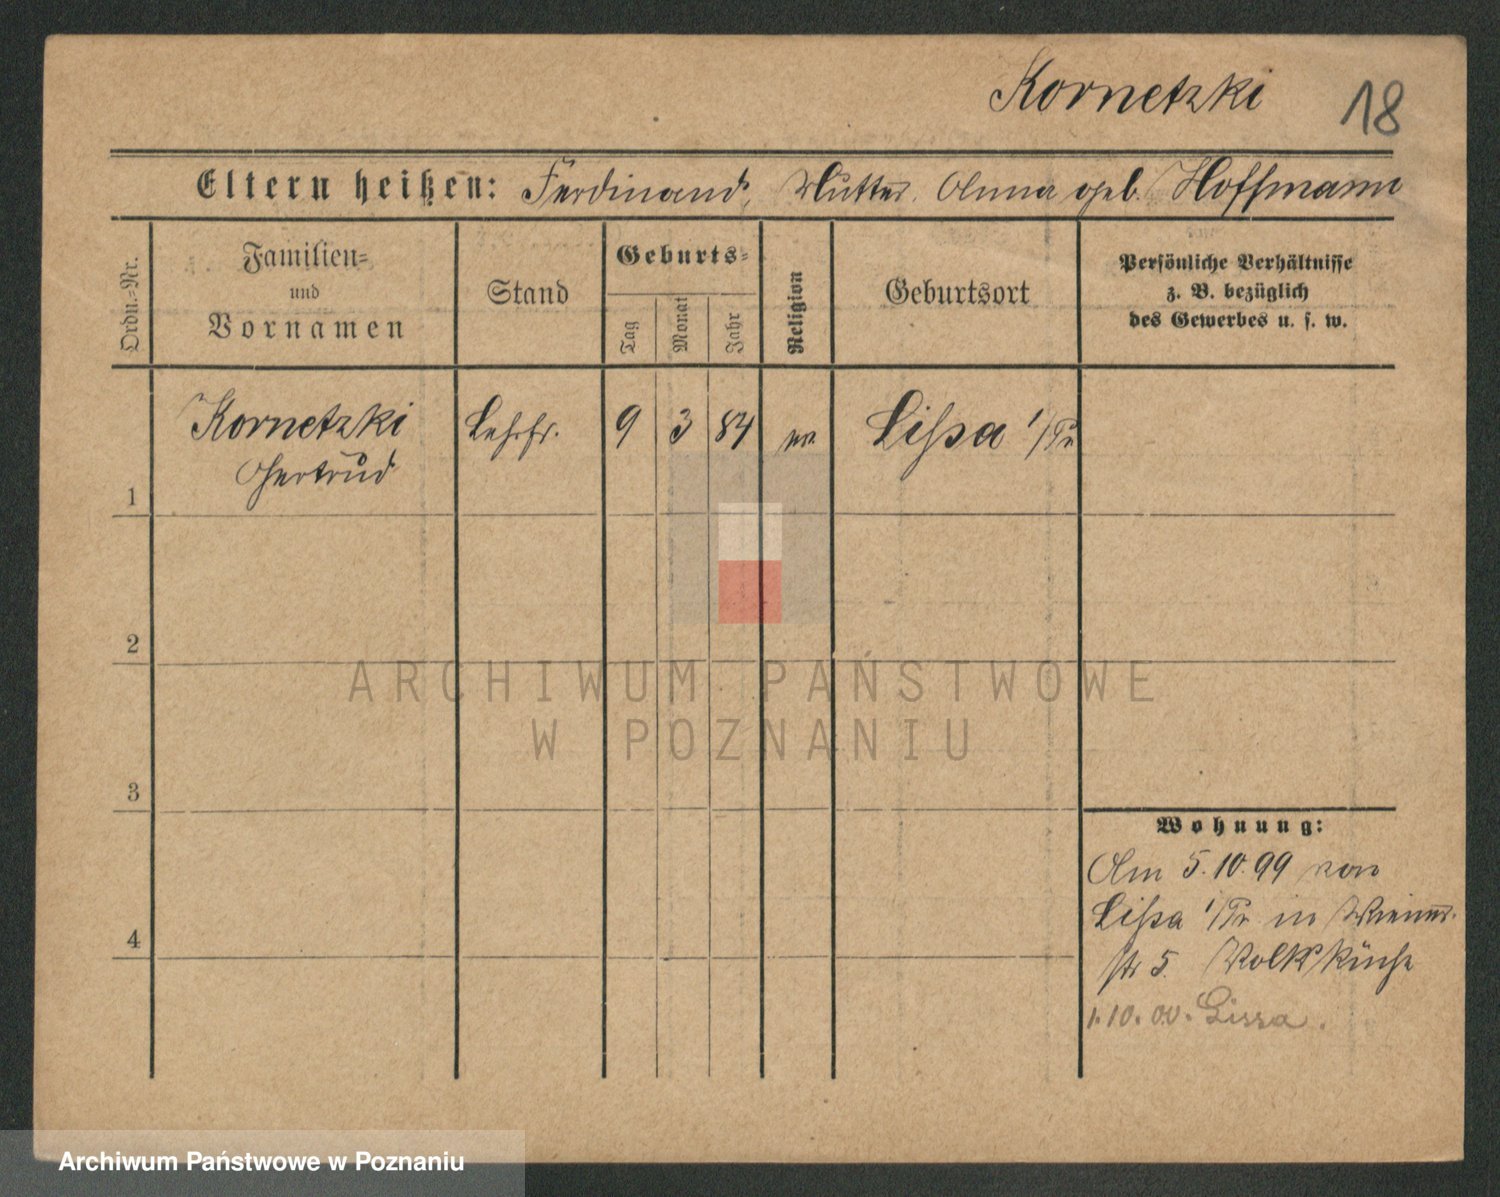 Kornetzki 18
Eltern heißen: Ferdinand, Mutter Anna geb. Hoffmann
Ordn.-Nr.
Familien-
und
Vornamen
Stand
Geburts-
Tag
Monat
Jahr
Religion
Geburtsort
Persönliche Verhältnisse
z. B. bezüglich
des Gewerbes u. s. w.
Kornetzki Lehrfr. 9 3 84 Lissa i/Pr
Gertrud
1
2
ARCHIWUM PAŃSTWOWE
W POZNANIU
3
Wohnung:
Am 5.10.99 von
Lissa i/Pr in Wiener-
4
str 5. Volksküche
1.10.00. Lissa.
Archiwum Państwowe w Poznaniu